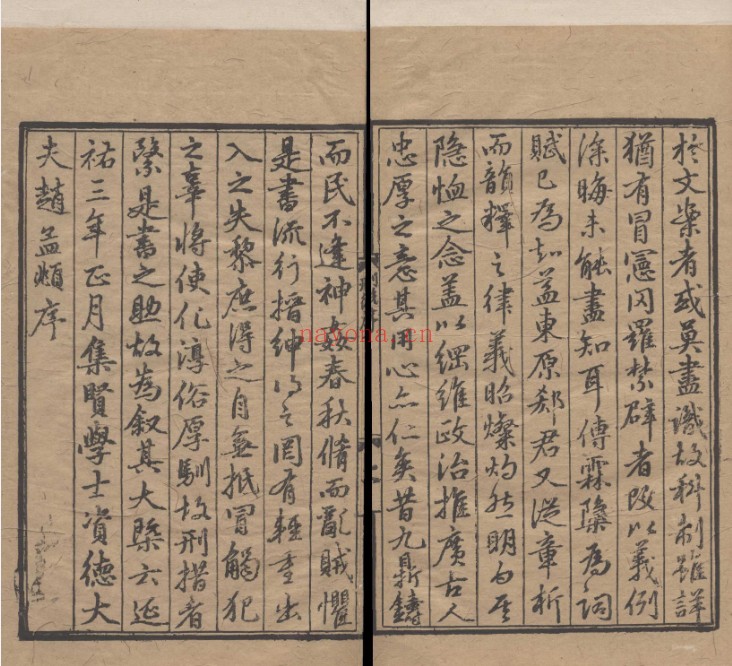 於文案者或莫盡識故科制雖詳
猶有冒憲罔羅禁辟者段以義例
深晦未能盡知耳傅霖櫽為詞
賦已為知益東原郄君又逐章析
而韻釋之律義昭燦灼然明白其
隱恤之念蓋以綱維政治推廣古人
忠厚之意其用心亦仁矣昔九鼎鑄
而民不逢神姦春秋脩而亂賊懼
是書流行搢紳得之罔有輕重出
入之失黎庶得之自無抵冒觸犯
之辜將使化淳俗厚馴故刑措者
繄是書之助故為叙其大槩云延
祐三年正月集賢學士資德大
夫趙孟頫序
nayona.cn